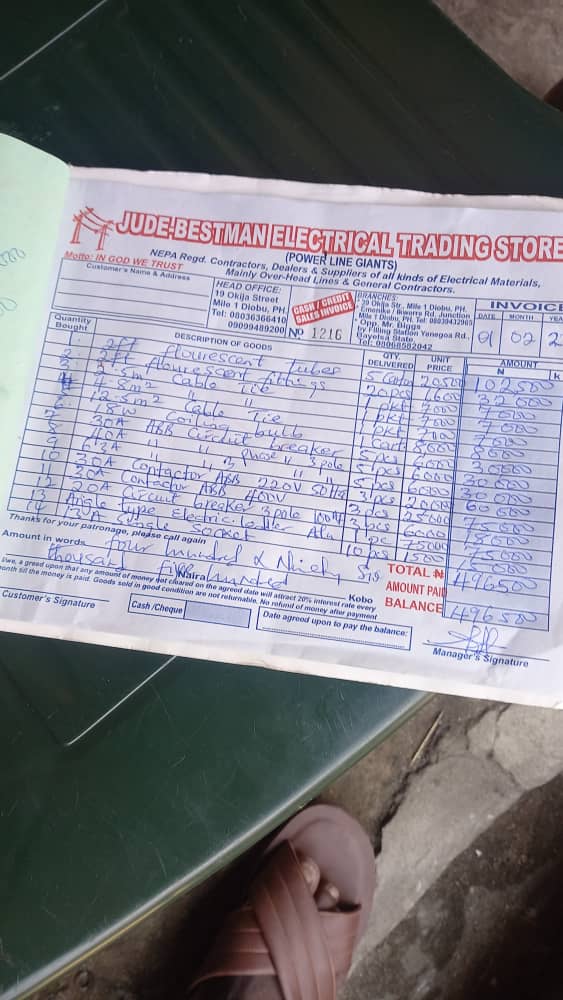 JUDE-BESTMAN ELECTRICAL TRADING STORE
(POWER LINE GIANTS)
Motto: IN GOD WE TRUST
NEPA Regd. Contractors, Dealers & Suppliers of all kinds of Electrical Materials,
Mainly Over-Head Lines & General Contractors.
Customer's Name & Address
HEAD OFFICE:
19 Okija Street
Mile 1 Diobu, PH,
Tel: 08036366410
09099489200
CASH / CREDIT
SALES INVOICE
No 1216
BRANCHES:
39 Okija Str., Mile 1 Diobu, PH,
Emenike / Ikwerre Rd. Junction
Mile 1 Diobu, PH. Tel: 08039432965
Opp. Mr. Biggs
By Filling Station Yenegoa Rd.,
Bayelsa State.
Tel: 08068582042
INVOICE
DATE MONTH
01 02
Quantity Bought DESCRIPTION OF GOODS QTY. DELIVERED UNIT PRICE AMOUNT
N k
1. 2ft Flourescent Tubes 102,500
2. 2ft Flourescent fittings 20pcs 1600 32000
3. 2.5m² Cable Tie 1pkt 7000 7000
4.8m² " "
12.5m² Cable Tie
18W Coiling bulb
20A ABB Circuit breaker 5pcs 6000 30000
40A " " "
9 63A " " Phase " 3 pole
10 30A Contactor ABB 220V 50Hz
11 30A Contactor ABB 400V 3pcs 25000 75000
12 20A Circuit breaker 3pole 3pcs 6000 18000
13 Angle type Electric ladder 1pc
14 13A Single Socket 10pcs 1500 15000
Thanks for your patronage, please call again
Amount in words four hundred & Ninety Six
thousand five hundred
Naira Kobo
TOTAL N 49650
AMOUNT PAID
BALANCE 496500
I/we, a greed upon that any amount of money not cleared on the agreed date will attract 20% interest rate every
month till the money is paid. Goods sold in good condition are not returnable. No refund of money after payment
Customer's Signature
Cash /Cheque
Date agreed upon to pay the balance:
Manager's Signature